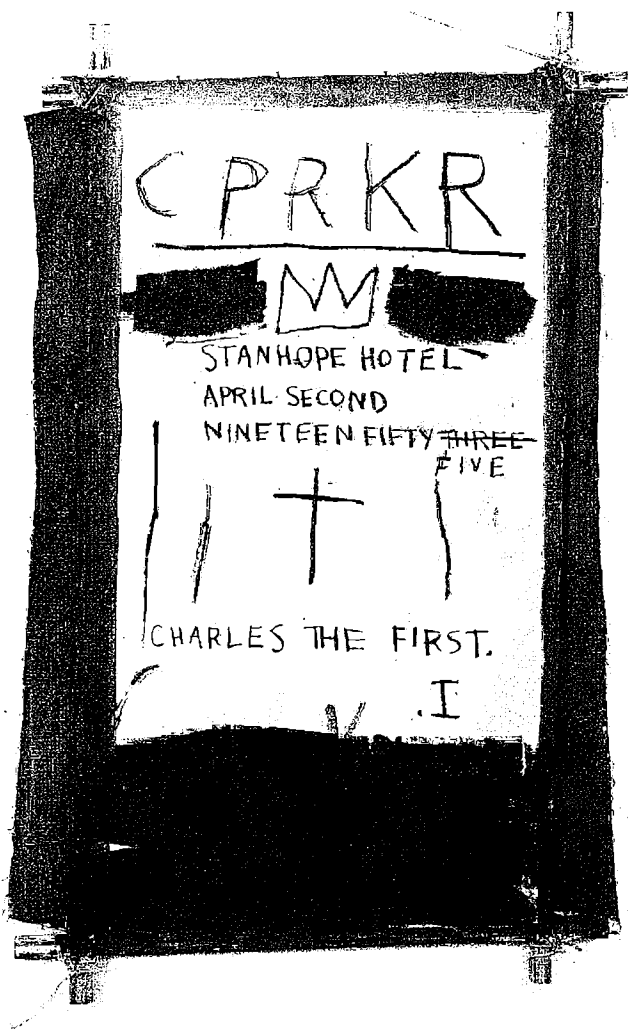 CPRKR
STANHOPE HOTEL
APRIL SECOND
NINETEEN FIFTY THREE
FIVE
CHARLES THE FIRST.
.I